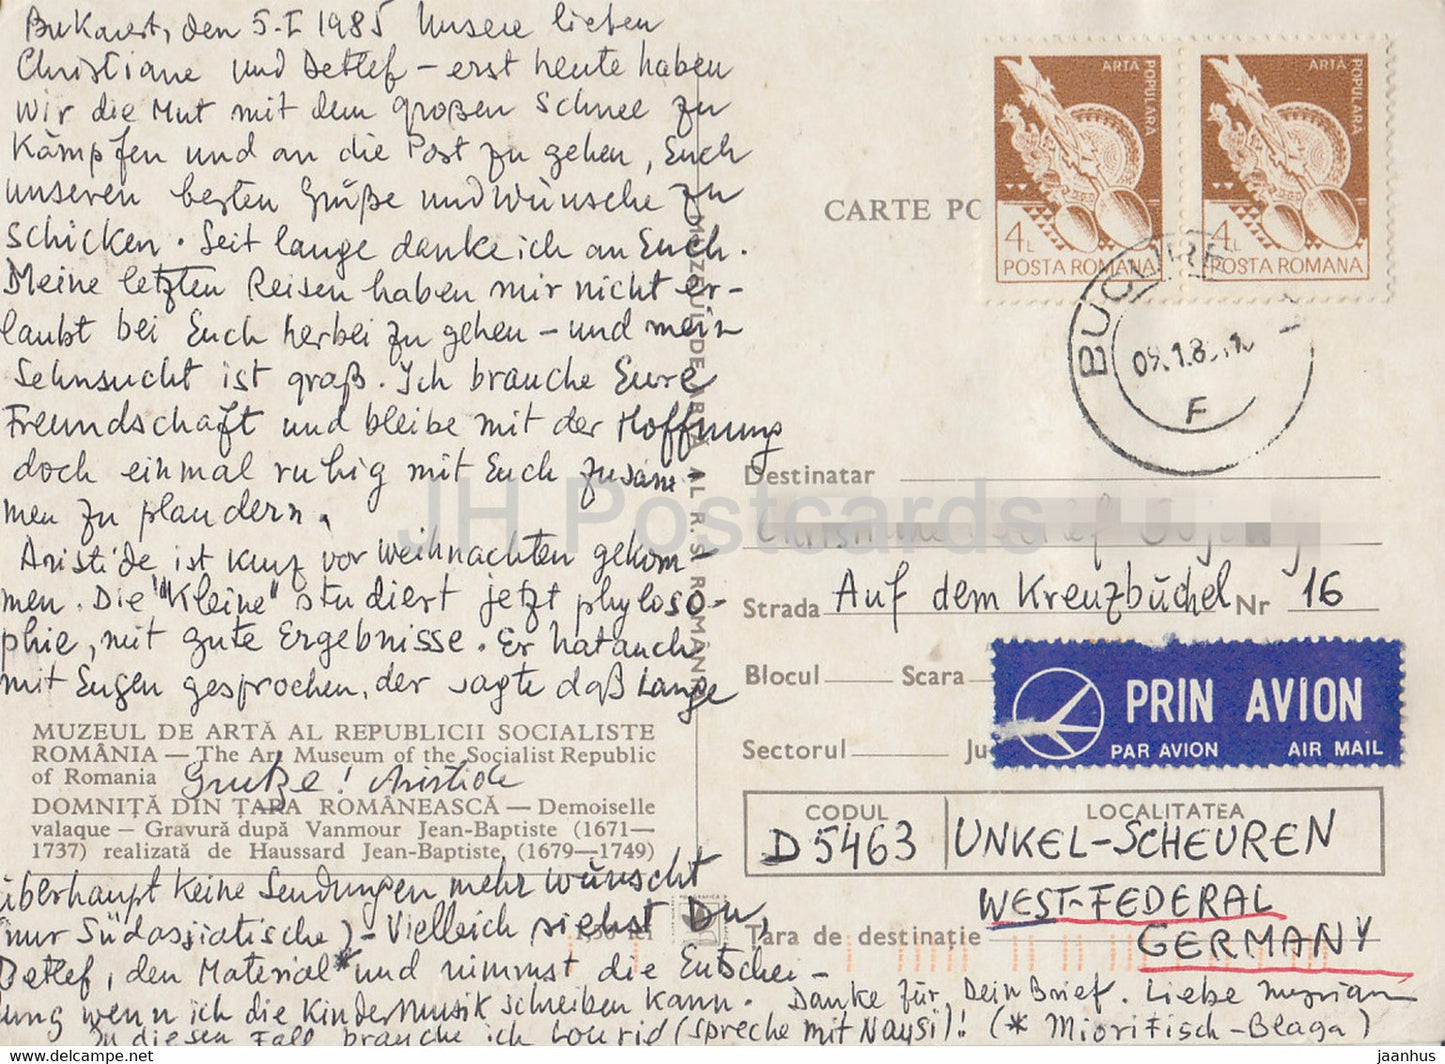 Bukarest, den 5.I 1985 Unsere lieben
Christiane und Detlef – erst heute haben
wir die Mut mit dem großen Schnee zu
kämpfen und an die Post zu gehen, Euch
unseren besten Grüße und Wünsche zu
schicken. Seit lange danke ich an Euch.
Meine letzten Reisen haben mir nicht er-
laubt bei Euch herbei zu gehen – und mein
Sehnsucht ist graß. Ich brauche Eure
Freundschaft und bleibe mit der Hoffnung
doch einmal ruhig mit Euch zusam-
men zu plaudern.
Aristide ist kurz vor Weihnachten gekom-
men. Die "Kleine" studiert jetzt phyloso-
phie, mit gute Ergebnisse. Er hat auch
mit Eugen gesprochen, der sagte daß Lange
MUZEUL DE ARTĂ AL REPUBLICII SOCIALISTE
ROMÂNIA — The Art Museum of the Socialist Republic
of Romania
Gruße! Aristide
DOMNIȚĂ DIN ȚARA ROMÂNEASCĂ — Demoiselle
valaque — Gravură după Vanmour Jean-Baptiste (1671—
1737) realizată de Haussard Jean-Baptiste, (1679—1749)
überhaupt keine Sendungen mehr wünscht
(nur Südasiatische) – Vielleich siehst Du,
Detlef, den Material* und nimmst die Entschei-
dung wenn ich die Kindermusik schreiben kann. Danke für Dein Brief. Liebe Myrian
In diesen Fall brauche ich (spreche mit Naysi)! (* Mioritisch-Blaga)
MUZEUL DE ARTĂ AL R. S. ROMÂNIA
CARTE PO
ARTĂ POPULARA
4L
POSTA ROMANA
ARTĂ POPULARA
4L
POSTA ROMANA
BUCURE
F
Destinatar
Strada Auf dem Kreuzbüchel Nr 16
Blocul Scara
Sectorul Ju
PRIN AVION
PAR AVION AIR MAIL
CODUL LOCALITATEA
D 5463 UNKEL-SCHEUREN
WEST-FEDERAL
Țara de destinație GERMANY
JH Postcards
https://www.jhpostcards.com jaanhus